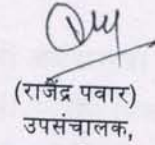 (राजेंद्र पवार)
उपसंचालक,